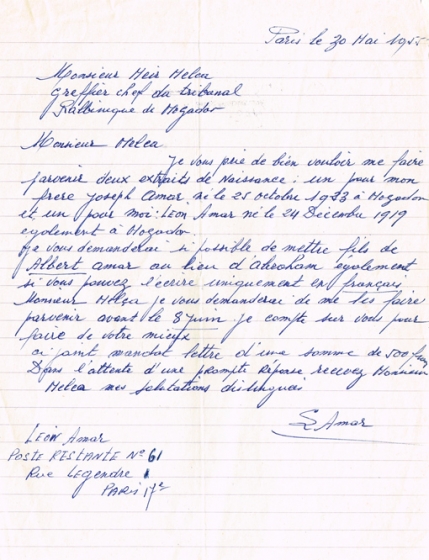 Paris le 30 Mai 1955
Monsieur Meir Melca
greffier chef du tribunal
Ralbinique de Mogador
Monsieur Melca.
Je vous prie de bien vouloir me faire
parvenir deux extraits de Naissance: un pour mon
frere Joseph Amar né le 25 octobre 1923 à Mogador
et un pour moi: Léon Amar né le 24 Décembre 1919
egalement à Mogador.
Je vous demanderai si possible de mettre fils de
Albert Amar au lieu d'Abraham egalement
si vous pouvez l'écrire uniquement en français
Monsieur Melca je vous demanderai de me les faire
parvenir avant le 8 juin je compte sur vous pour
faire de votre mieux
ci joint mandat lettre d'une somme de 500 
Dans l'attente d'une prompte Réponse recevez Monsieur
Melca mes salutations distingués
L Amar
LEON Amar
POSTE RESTANTE N° 61
Rue Legendre
PARIS 17e